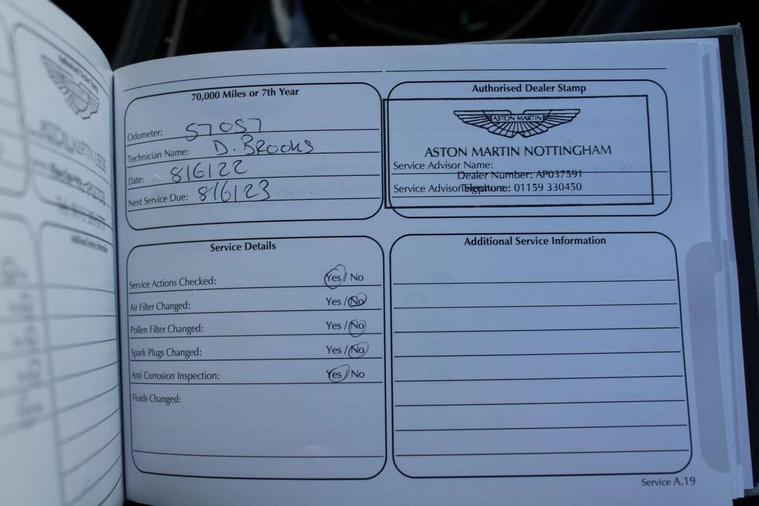 70,000 Miles or 7th Year
Odometer: 57057
Technician Name: D. Brooks
Date: 8/6/22
Next Service Due: 8/6/23
Authorised Dealer Stamp
ASTON MARTIN
ASTON MARTIN NOTTINGHAM
Service Advisor Name:
Dealer Number: AP037591
Service Advisor Signature:
Telephone: 01159 330450
Service Details
Service Actions Checked: Yes / No
Air Filter Changed: Yes / No
Pollen Filter Changed: Yes / No
Spark Plugs Changed: Yes / No
Anti Corrosion Inspection: Yes / No
Fluids Changed:
Additional Service Information
Service A.19